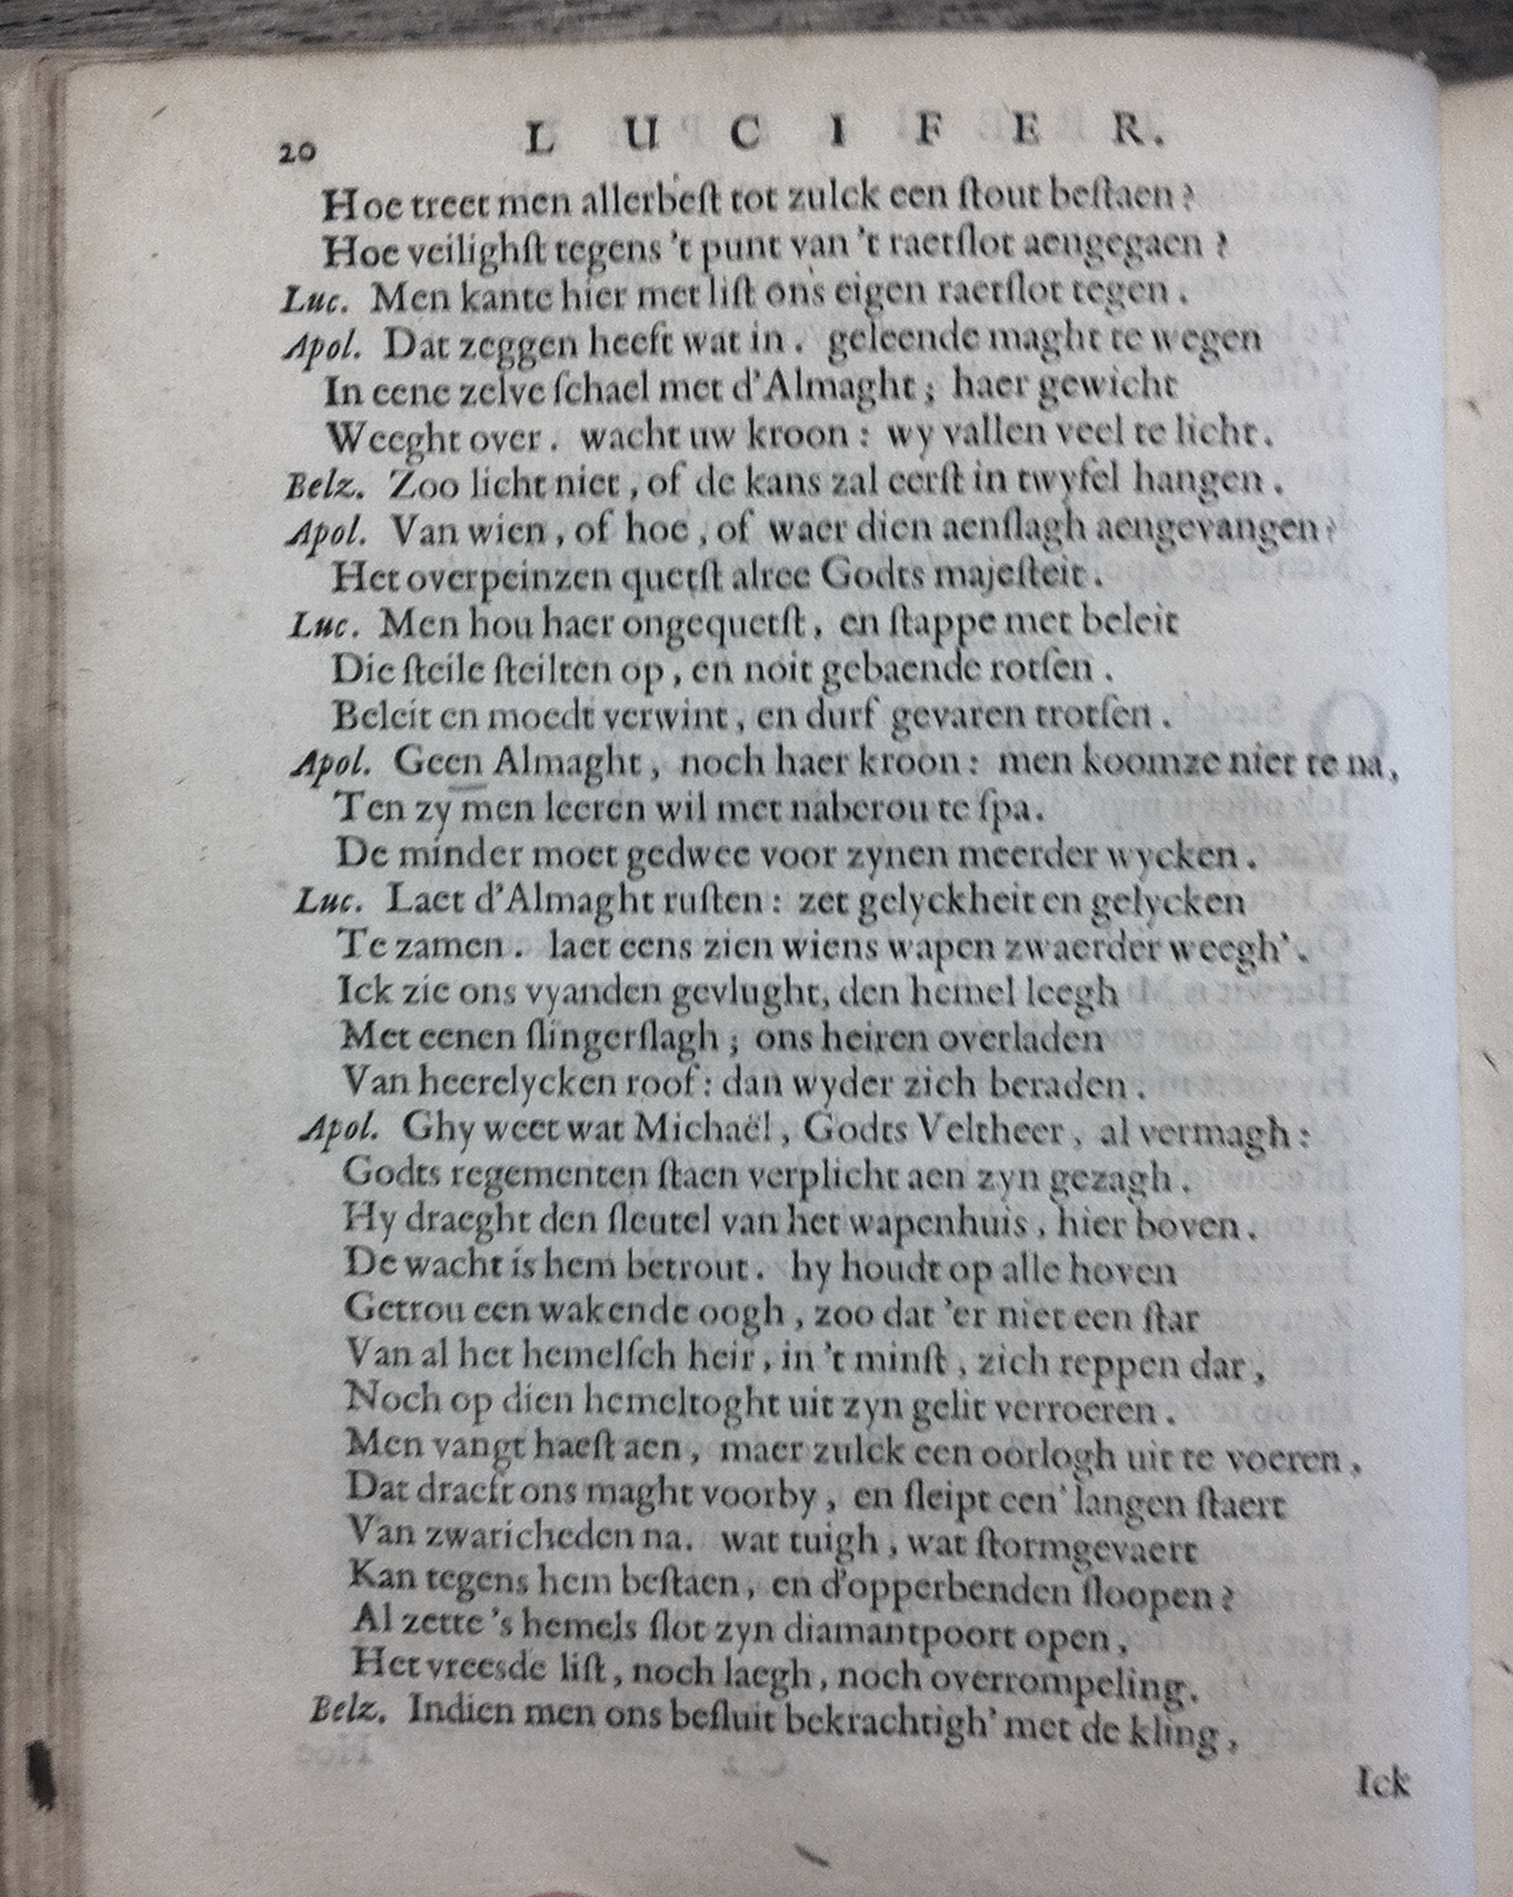 20 LUCIFER.
Hoe treet men allerbeſt tot zulck een ſtout beſtaen?
Hoe veilighſt tegens 't punt van 't raetſlot aengegaen?
Luc. Men kante hier met liſt ons eigen raetſlot tegen.
Apol. Dat zeggen heeft wat in. geleende maght te wegen
In eene zelve ſchael met d'Almaght; haer gewicht
Weeght over. wacht uw kroon: wy vallen veel te licht.
Belz. Zoo licht niet, of de kans zal eerſt in twyfel hangen.
Apol. Van wien, of hoe, of waer dien aenſlagh aengevangen?
Het overpeinzen quetſt alree Godts majeſteit.
Luc. Men hou haer ongequetſt, en ſtappe met beleit
Die ſteile ſteilten op, en noit gebaende rotſen.
Beleit en moedt verwint, en durf gevaren trotſen.
Apol. Geen Almaght, noch haer kroon: men koomze niet te na,
Ten zy men leeren wil met naberou te ſpa.
De minder moet gedwee voor zynen meerder wycken.
Luc. Laet d'Almaght ruſten: zet gelyckheit en gelycken
Te zamen. laet eens zien wiens wapen zwaerder weegh'.
Ick zie ons vyanden gevlught, den hemel leegh
Met eenen ſlingerſlagh; ons heiren overladen
Van heerelycken roof: dan wyder zich beraden.
Apol. Ghy weet wat Michaël, Godts Veltheer, al vermagh:
Godts regementen ſtaen verplicht aen zyn gezagh.
Hy draeght den ſleutel van het wapenhuis, hier boven.
De wacht is hem betrout. hy houdt op alle hoven
Getrou een wakende oogh, zoo dat 'er niet een ſtar
Van al het hemelſch heir, in 't minſt, zich reppen dar,
Noch op dien hemeltoght uit zyn gelit verroeren.
Men vangt haeſt aen, maer zulck een oorlogh uit te voeren,
Dat draeft ons maght voorby, en ſleipt een' langen ſtaert
Van zwaricheden na. wat tuigh, wat ſtormgevaert
Kan tegens hem beſtaen, en d'opperbenden ſloopen?
Al zette 's hemels ſlot zyn diamantpoort open,
Het vreesde liſt, noch laegh, noch overrompeling.
Belz. Indien men ons beſluit bekrachtigh' met de kling,
Ick